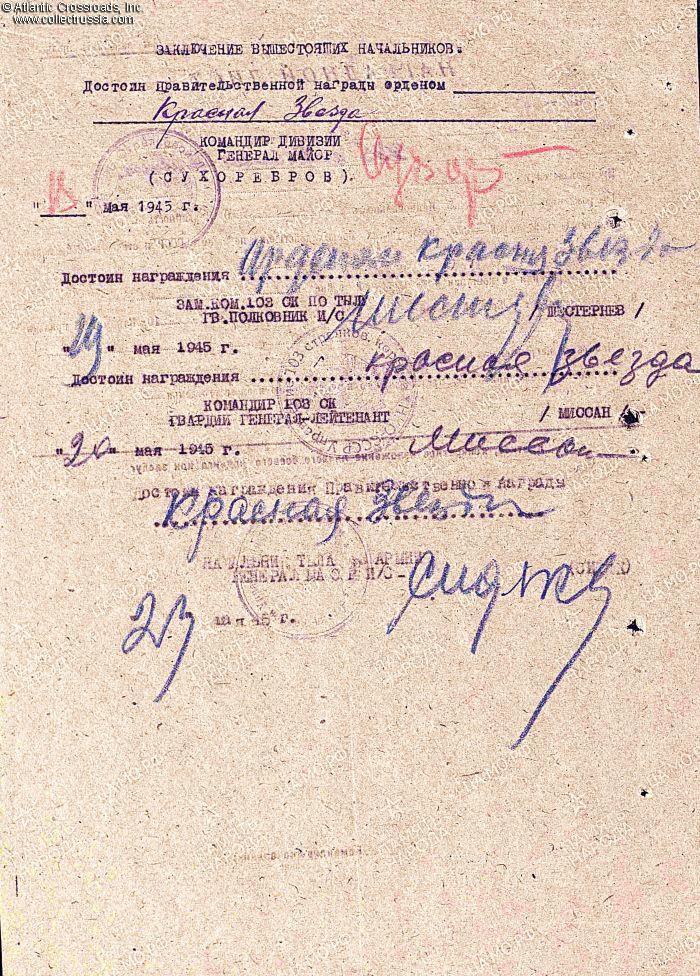 © Atlantic Crossroads, Inc.
www.collectrussia.com
ЗАКЛЮЧЕНИЕ ВЫШЕСТОЯЩИХ НАЧАЛЬНИКОВ:
Достоин правительственной награды орденом
Красная Звезда
КОМАНДИР ДИВИЗИИ
ГЕНЕРАЛ МАЙОР
(СУХОРЕБРОВ).
" " мая 1945 г.
Достоин награждения Орденом Красная Звезда
ЗАМ.КОМ.103 СК ПО ТЫЛУ
ГВ.ПОЛКОВНИК И/С / ШЕСТЕРНЕВ /
"19" мая 1945 г.
Достоин награждения Красная Звезда
КОМАНДИР 103 СК
ГВАРДИИ ГЕНЕРАЛ-ЛЕЙТЕНАНТ / МИССАН /
"20" мая 1945 г. Миссан
Достоин награждения Правительственной награды
Красная Звезда
НАЧАЛЬНИК ТЫЛА АРМИИ
ГЕНЕРАЛ МАЙОР И/С -
23 " мая 45 г.